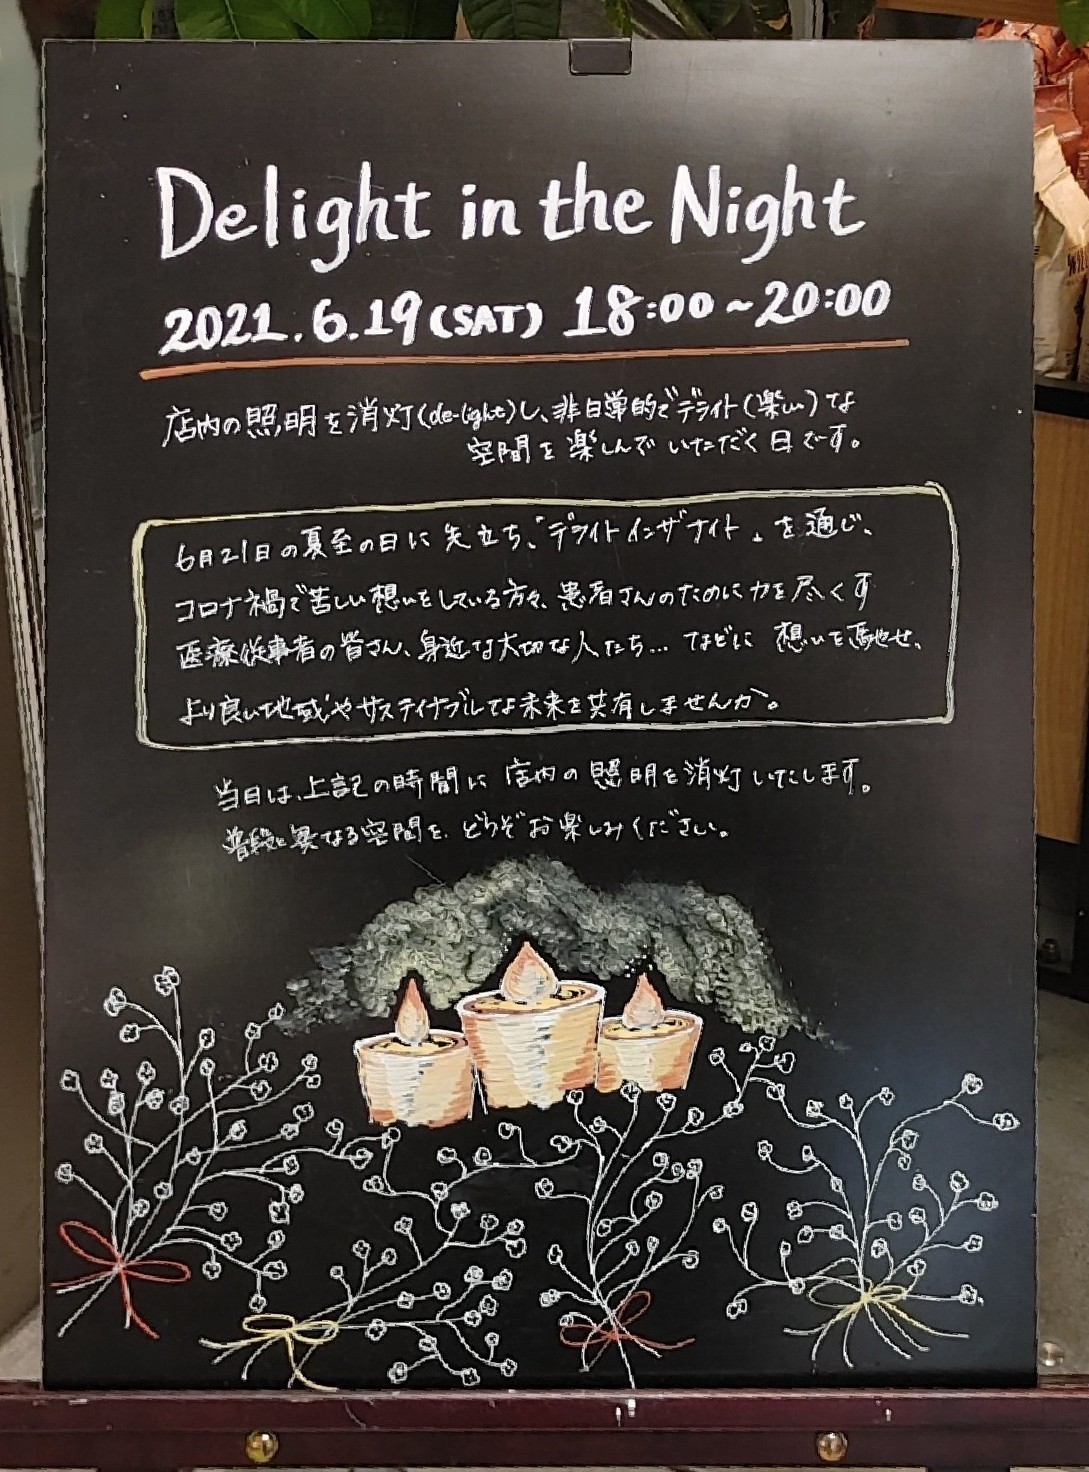 Delight in the Night
2021.6.19(SAT) 18:00~20:00
店内の照明を消灯(de-light)し、非日常的でデライト(楽しい)な
空間を楽しんでいただく日です。
6月21日の夏至の日に先立ち、「デライトインザナイト」を通じ、
コロナ禍で苦しい想いをしている方々、患者さんのために力を尽くす
医療従事者の皆さん、身近な大切な人たち…などに想いを馳せ、
より良い地域やサスティナブルな未来を共有しませんか。
当日は、上記の時間に店内の照明を消灯いたします。
普段と異なる空間を、どうぞお楽しみください。